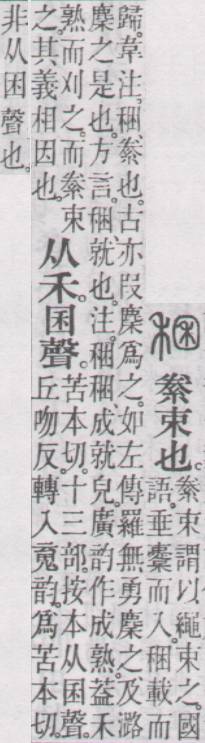 稛
絭束也。
絭束謂以繩束之。國
語。垂橐而入。稛載而
歸。韋注。稛、絭也。古亦叚麇爲之。如左傳羅無勇麇之、及潞
麇之是也。方言。稛、就也。注。稛稛、成就皃。廣韵作成熟。葢禾
熟而刈之。而絭束
之。其義相因也。
从禾囷聲。
苦本切。十三部。按本从囷聲。
丘吻反。轉入䰟韵。爲苦本切。
非从困聲也。